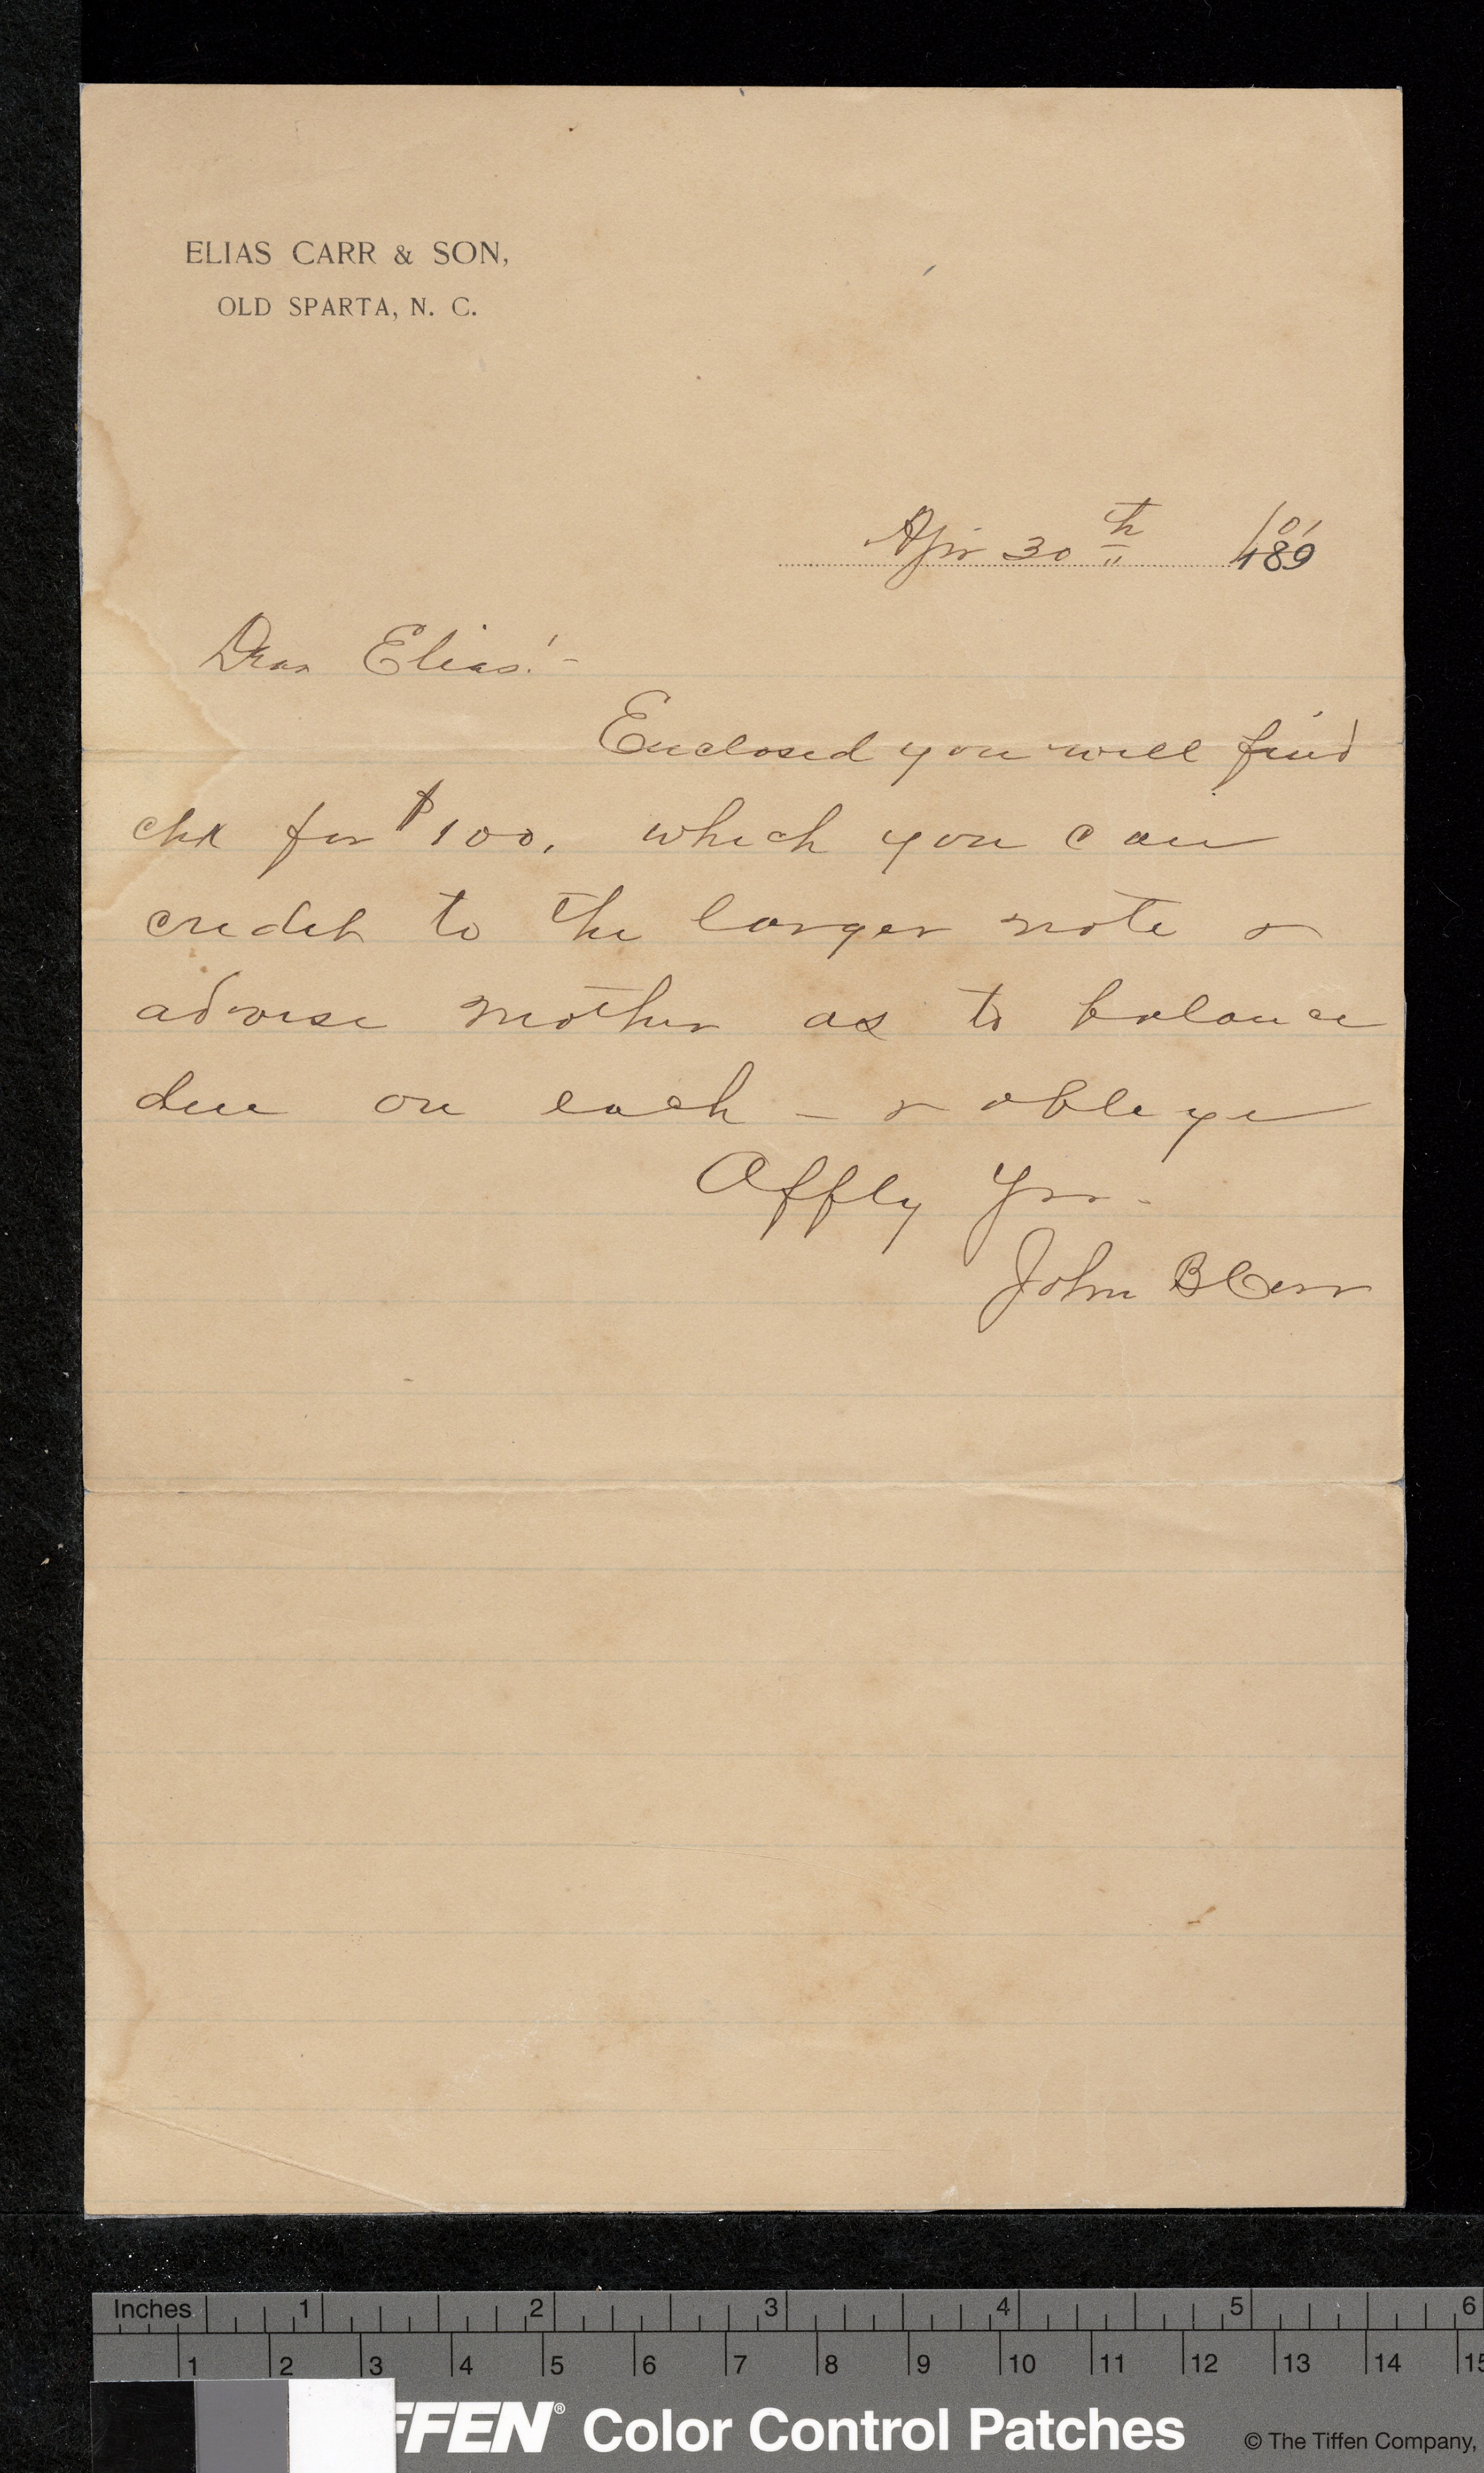 ELIAS CARR & SON,
OLD SPARTA, N. C.
Apr 30th 189
Dear Elias:-
Enclosed you will find
chk for $100, which you can
credit to the larger note &
advise mother as to balance
due on each - & oblige
Affly Yrs.
John B Carr
Inches 1 2 3 4 5 6
1 2 3 4 5 6 7 8 9 10 11 12 13 14 15
FFEN® Color Control Patches © The Tiffen Company,